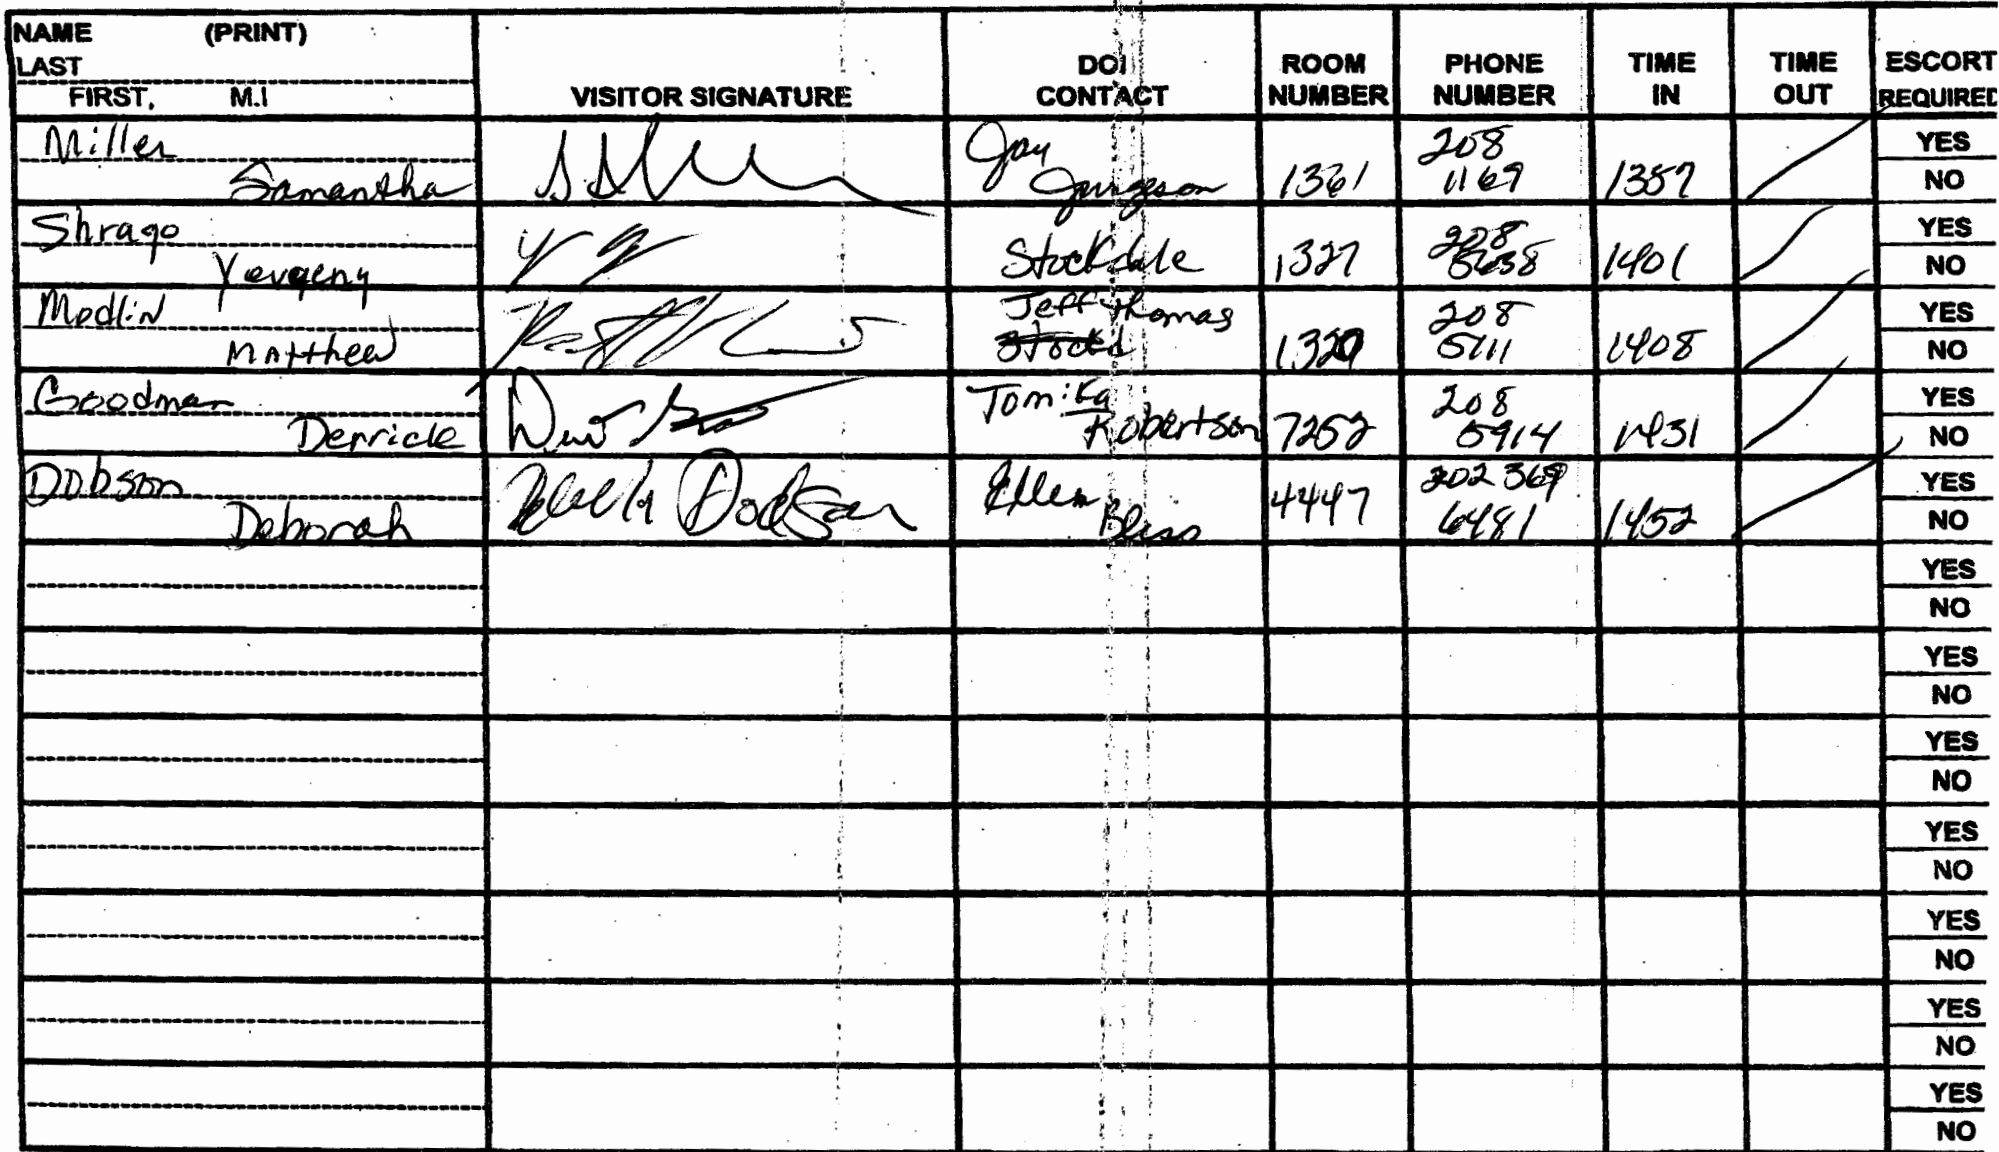 NAME (PRINT)
LAST
FIRST, M.I
VISITOR SIGNATURE
DOI
CONTACT
ROOM
NUMBER
PHONE
NUMBER
TIME
IN
TIME
OUT
ESCORT
REQUIRED
Miller
Samantha
Jay
1361
208
1169
1357
YES
NO
Shrago
Yevgeny
Stockdale
1327
208
1401
YES
NO
Modlin
Matthew
Jeff Thomas
Stockd
208
5111
1408
YES
NO
Goodman
Derrick
Tomika
Robertson
7252
208
5914
1431
YES
NO
Dobson
Deborah
Ellen
Bliss
4447
202 369
6481
1452
YES
NO
YES
NO
YES
NO
YES
NO
YES
NO
YES
NO
YES
NO
YES
NO